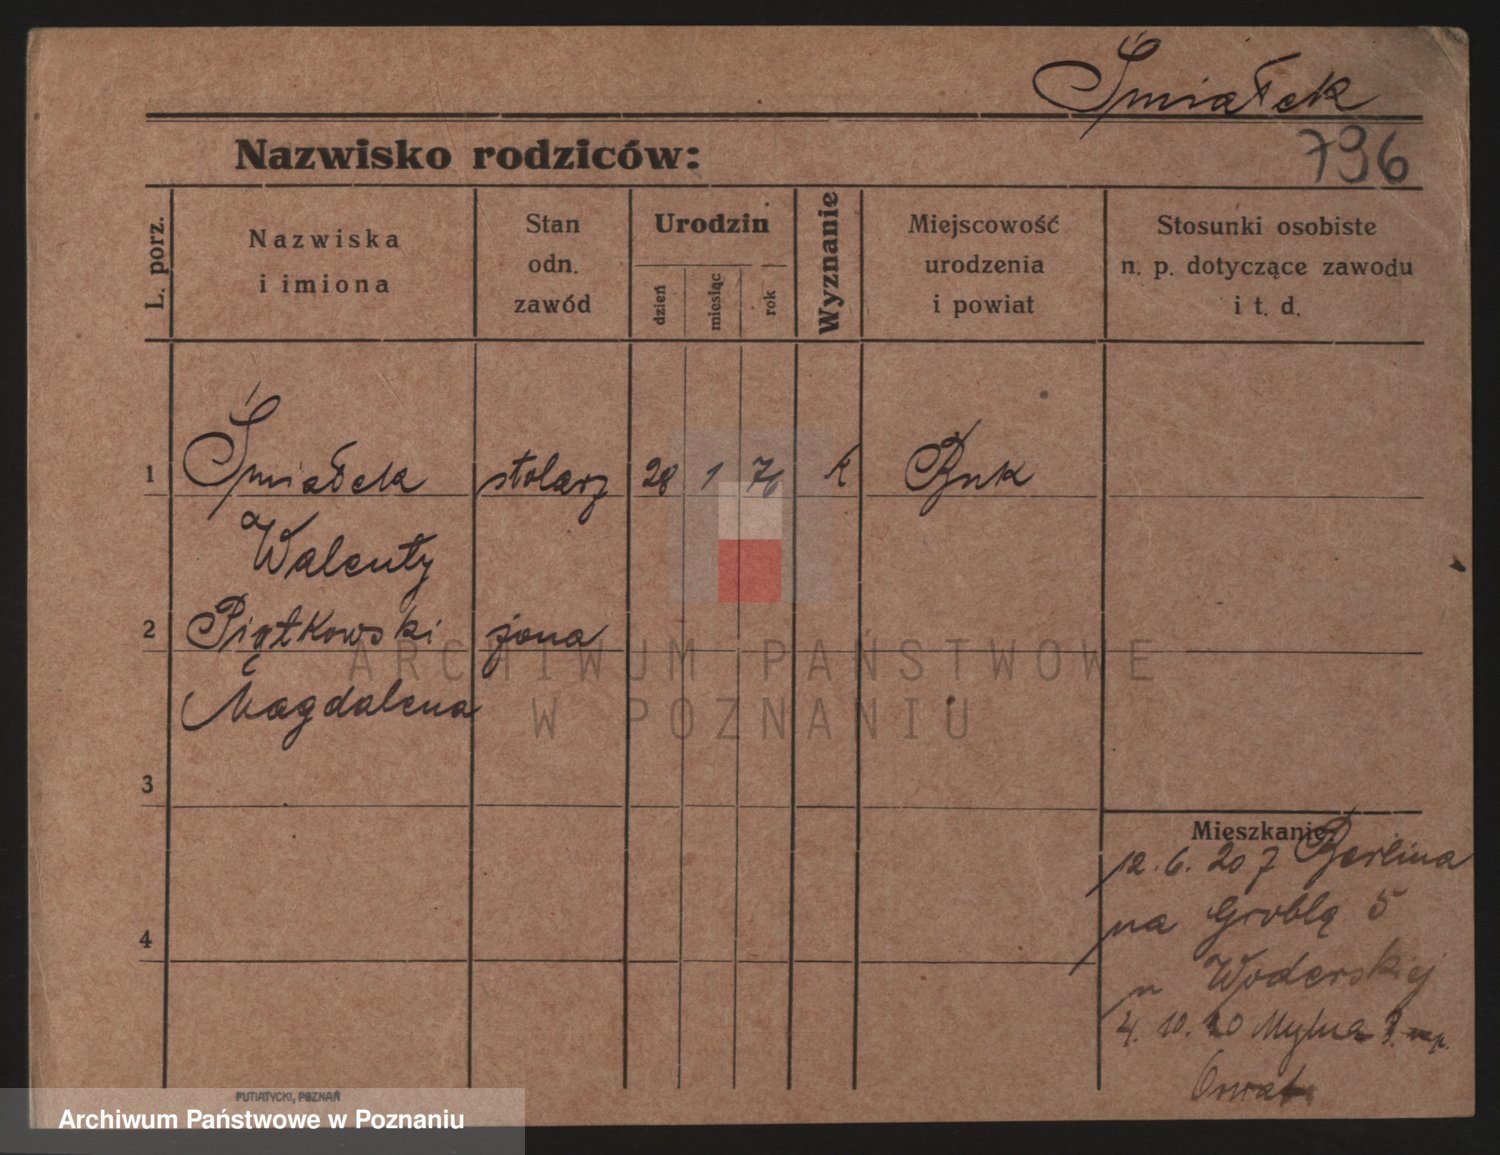 Śmiałek
796
Nazwisko rodziców:
L. porz.
Nazwiska
i imiona
Stan
odn.
zawód
Urodzin
dzień
miesiąc
rok
Wyznanie
Miejscowość
urodzenia
i powiat
Stosunki osobiste
n. p. dotyczące zawodu
i t. d.
1 Śmiałek stolarz 28 1 76 k Buk
Walenty
2 Piątkowski żona
Magdalena
3
4
Mieszkanie:
12. 6. 20 z Berlina
na Groblą 5
u Woderskiej
4. 10. 20 Mylna
ARCHIWUM PAŃSTWOWE
W POZNANIU
PUTIATYCKI, POZNAŃ
Archiwum Państwowe w Poznaniu